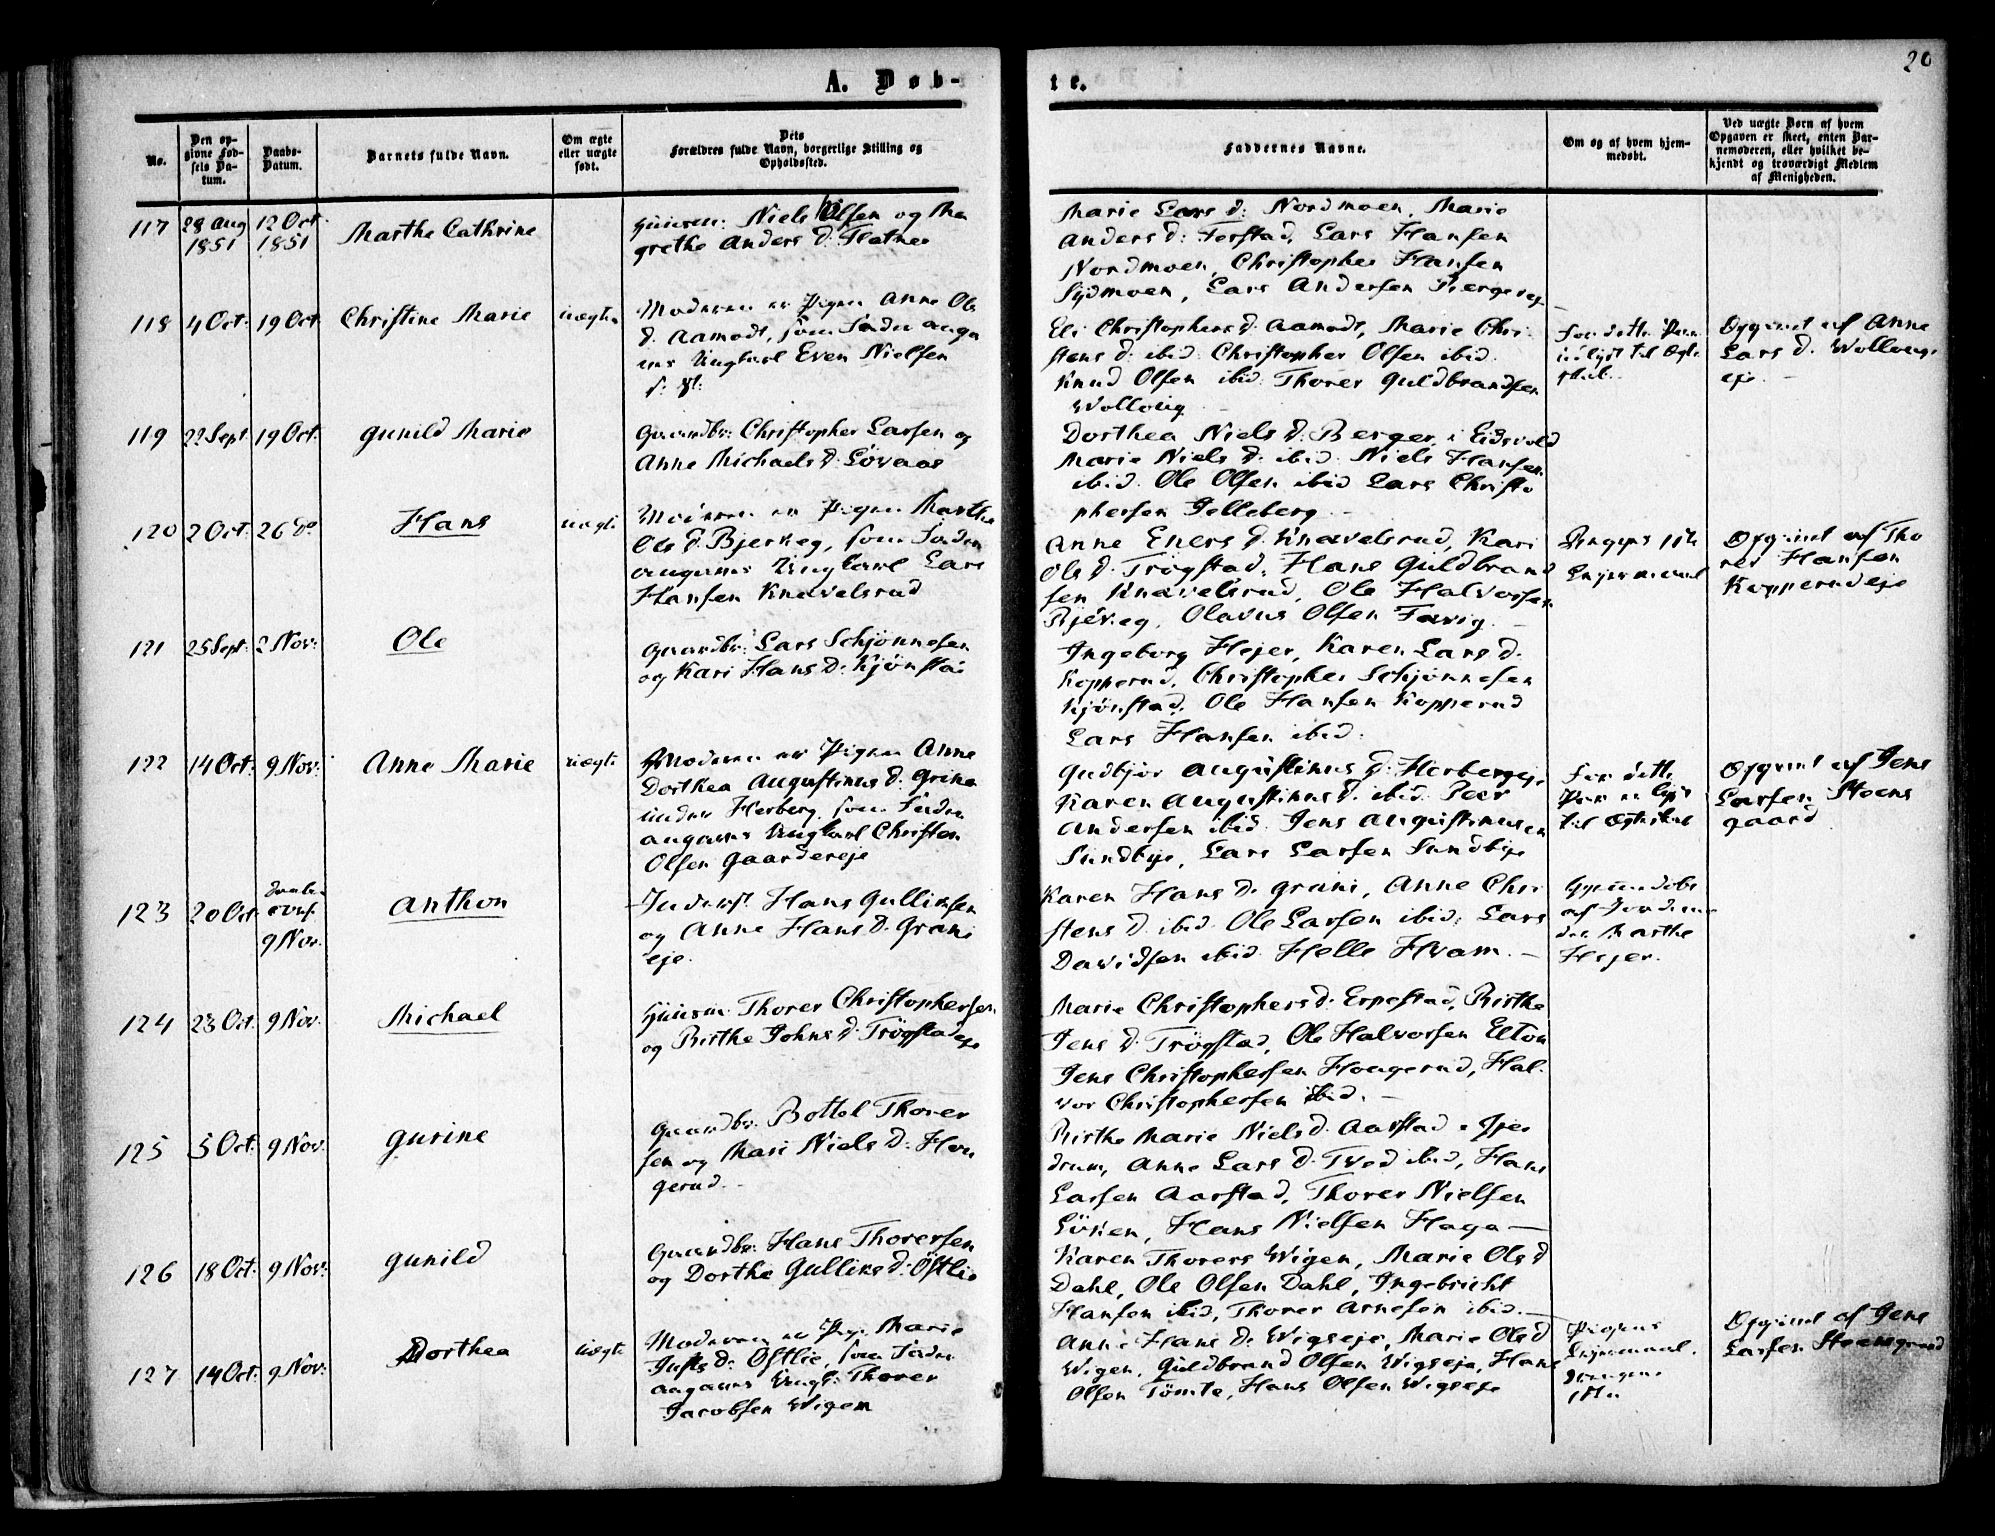 20
A. Døb-
te.
No.
Den op-
givne Fød-
sels Da-
tum.
Daabs-
Datum.
Barnets fulde Navn.
Om ægte
eller uægte
født.
Dets
Forældres fulde Navn, borgerlige Stilling og
Opholdssted.
Faddernes Navne.
Om og af hvem hjem-
medøbt.
Ved uægte Børn af hvem
Opgaven er skeet, enten Bar-
nemoderen, eller hvilket be-
kjendt og troværdigt Medlem
af Menigheden.
117
28 Aug
1851
12 Oct
1851
Marthe Cathrine
Huusm: Niels Olsen og Ma
grethe Anders D: Flatnes
Marie Lars D: Nordmoen, Marie
Anders D: Forstad, Lars Hansen
Nordmoen, Christopher Hansen
Sydmoen, Lars Andersen Bergereje
118
4 Oct:
19 Oct
Christine Marie
uægte
Moderen er Pigen Anne Ols
D. Aamodt, som Fader angi
ves Ungkarl Even Nielsen
Eli Christophers D. Aamodt, Marie Chri
stens D: ibid: Christopher Olsen ibid.
Knud Olsen ibid: Thorer Guldbrandsen
Wollovig
For dette Par
til Ægte
skab
Opgivet af Anne
Lars D. Wollovigs
eje. -
119
22 Sept
19 Oct:
Gunild Marie
Gaardbr: Christopher Larsen og
Anne Michaels D: Løvaas
Dorthea Niels D: Berger i Eidsvold
Marie Niels D: ibid. Niels Hansen
ibid. Ole Olsen ibid Lars Christo
phersen Jelleberg -
120
2 Oct:
26 do
Hans
uægte
Moderen er Pigen Marthe
Ols D. Bjerkeg, som Fader
angives Ungkarl Lars
Hansen Knavelsrud
Anne Eners D. Knavelsrud, Kari
Ols D. Trøgstad, Hans Guldbrand
sen Knavelsrud, Ole Halvorsen
Olavus Olsen Favig -
Drengens 1ste
Leiermaal
Opgivet af Tho
rer Hansen
Kopperudeje
121
25 Sept:
2 Nov:
Ole
Gaardbr: Lars Schjønnesen
og Kari Hans D: Kjønstad
Ingeborg Hejer, Karen Lars D.
Kopperud, Christopher Schjønnesen
Kjønstad, Ole Hansen Kopperud
Lars Hansen ibid.
122
14 Oct:
9 Nov:
Anne Marie
uægte
Moderen er Pigen Anne
Dorthea Augustinus D: Grina
under Herberg, som Fader
angives Ungkarl Christen
Olsen Gaardereje
Gudbjør Augustinus D: Herbergeje
Karen Augustinus D. ibid. Peer
Andersen ibid. Jens Augustinusen
Sundbye, Lars Larsen Sundbye
For dette
Par er lyst
til Ægteskab
Opgivet af Jens
Larsen Steens
gaard
123
20 Oct
9 Nov.
Anthon
Inderst Hans Gulliksen
og Anne Hans D. Grani
eje.
Karen Hans D. Grani, Anne Chri
stens D. ibid. Ole Larsen ibid: Lars
Davidsen ibid. Helle Hvam. -
Hjemmedøbt
af Jordemo
der Marthe
Hejer.
124
23 Oct:
9 Nov.
Michael
Huusm: Thorer Christophersen
og Birthe Johns D: Trøgstadeje
Marie Christophers D: Erpestad, Birthe
Jens D. Trøgstad, Ole Halvorsen Elton
Jens Christophersen Hougerud, Hal-
vor Christophersen ibid. -
125
5 Oct:
9 Nov:
Gurine
Gaardbr: Bottol Thorer
sen og Mari Niels D: Hou
gerud. -
Birthe Marie Niels D. Aarstad i Gjer
drum, Anne Lars D. Tved ibid, Hans
Larsen Aarstad, Thorer Nielsen
Löken, Hans Nielsen Haga -
126
18 Oct:
9 Nov:
Gunild
Gaardbr: Hans Thorersen
og Dorthe Gulliks D: Østlie
Karen Thorers Wigen, Marie Ols D
Dahl, Ole Olsen Dahl, Ingebricht
Hansen ibid, Thorer Arnesen ibid. -
127
14 Oct:
9 Nov:
Dorthea
uægte
Moderen er Pige Marie
Justs D: Østlie, som Fader
angives Ungk: Thorer
Jacobsen Wigen
Anne Hans D: Wigseje, Marie Ols D
Wigen, Guldbrand Olsen Wigseje, Hans
Olsen Tömte, Hans Olsen Wigseje
Pigens
Leiermaal.
Drengens
1ste
Opgivet af Jens
Larsen Steensgaard